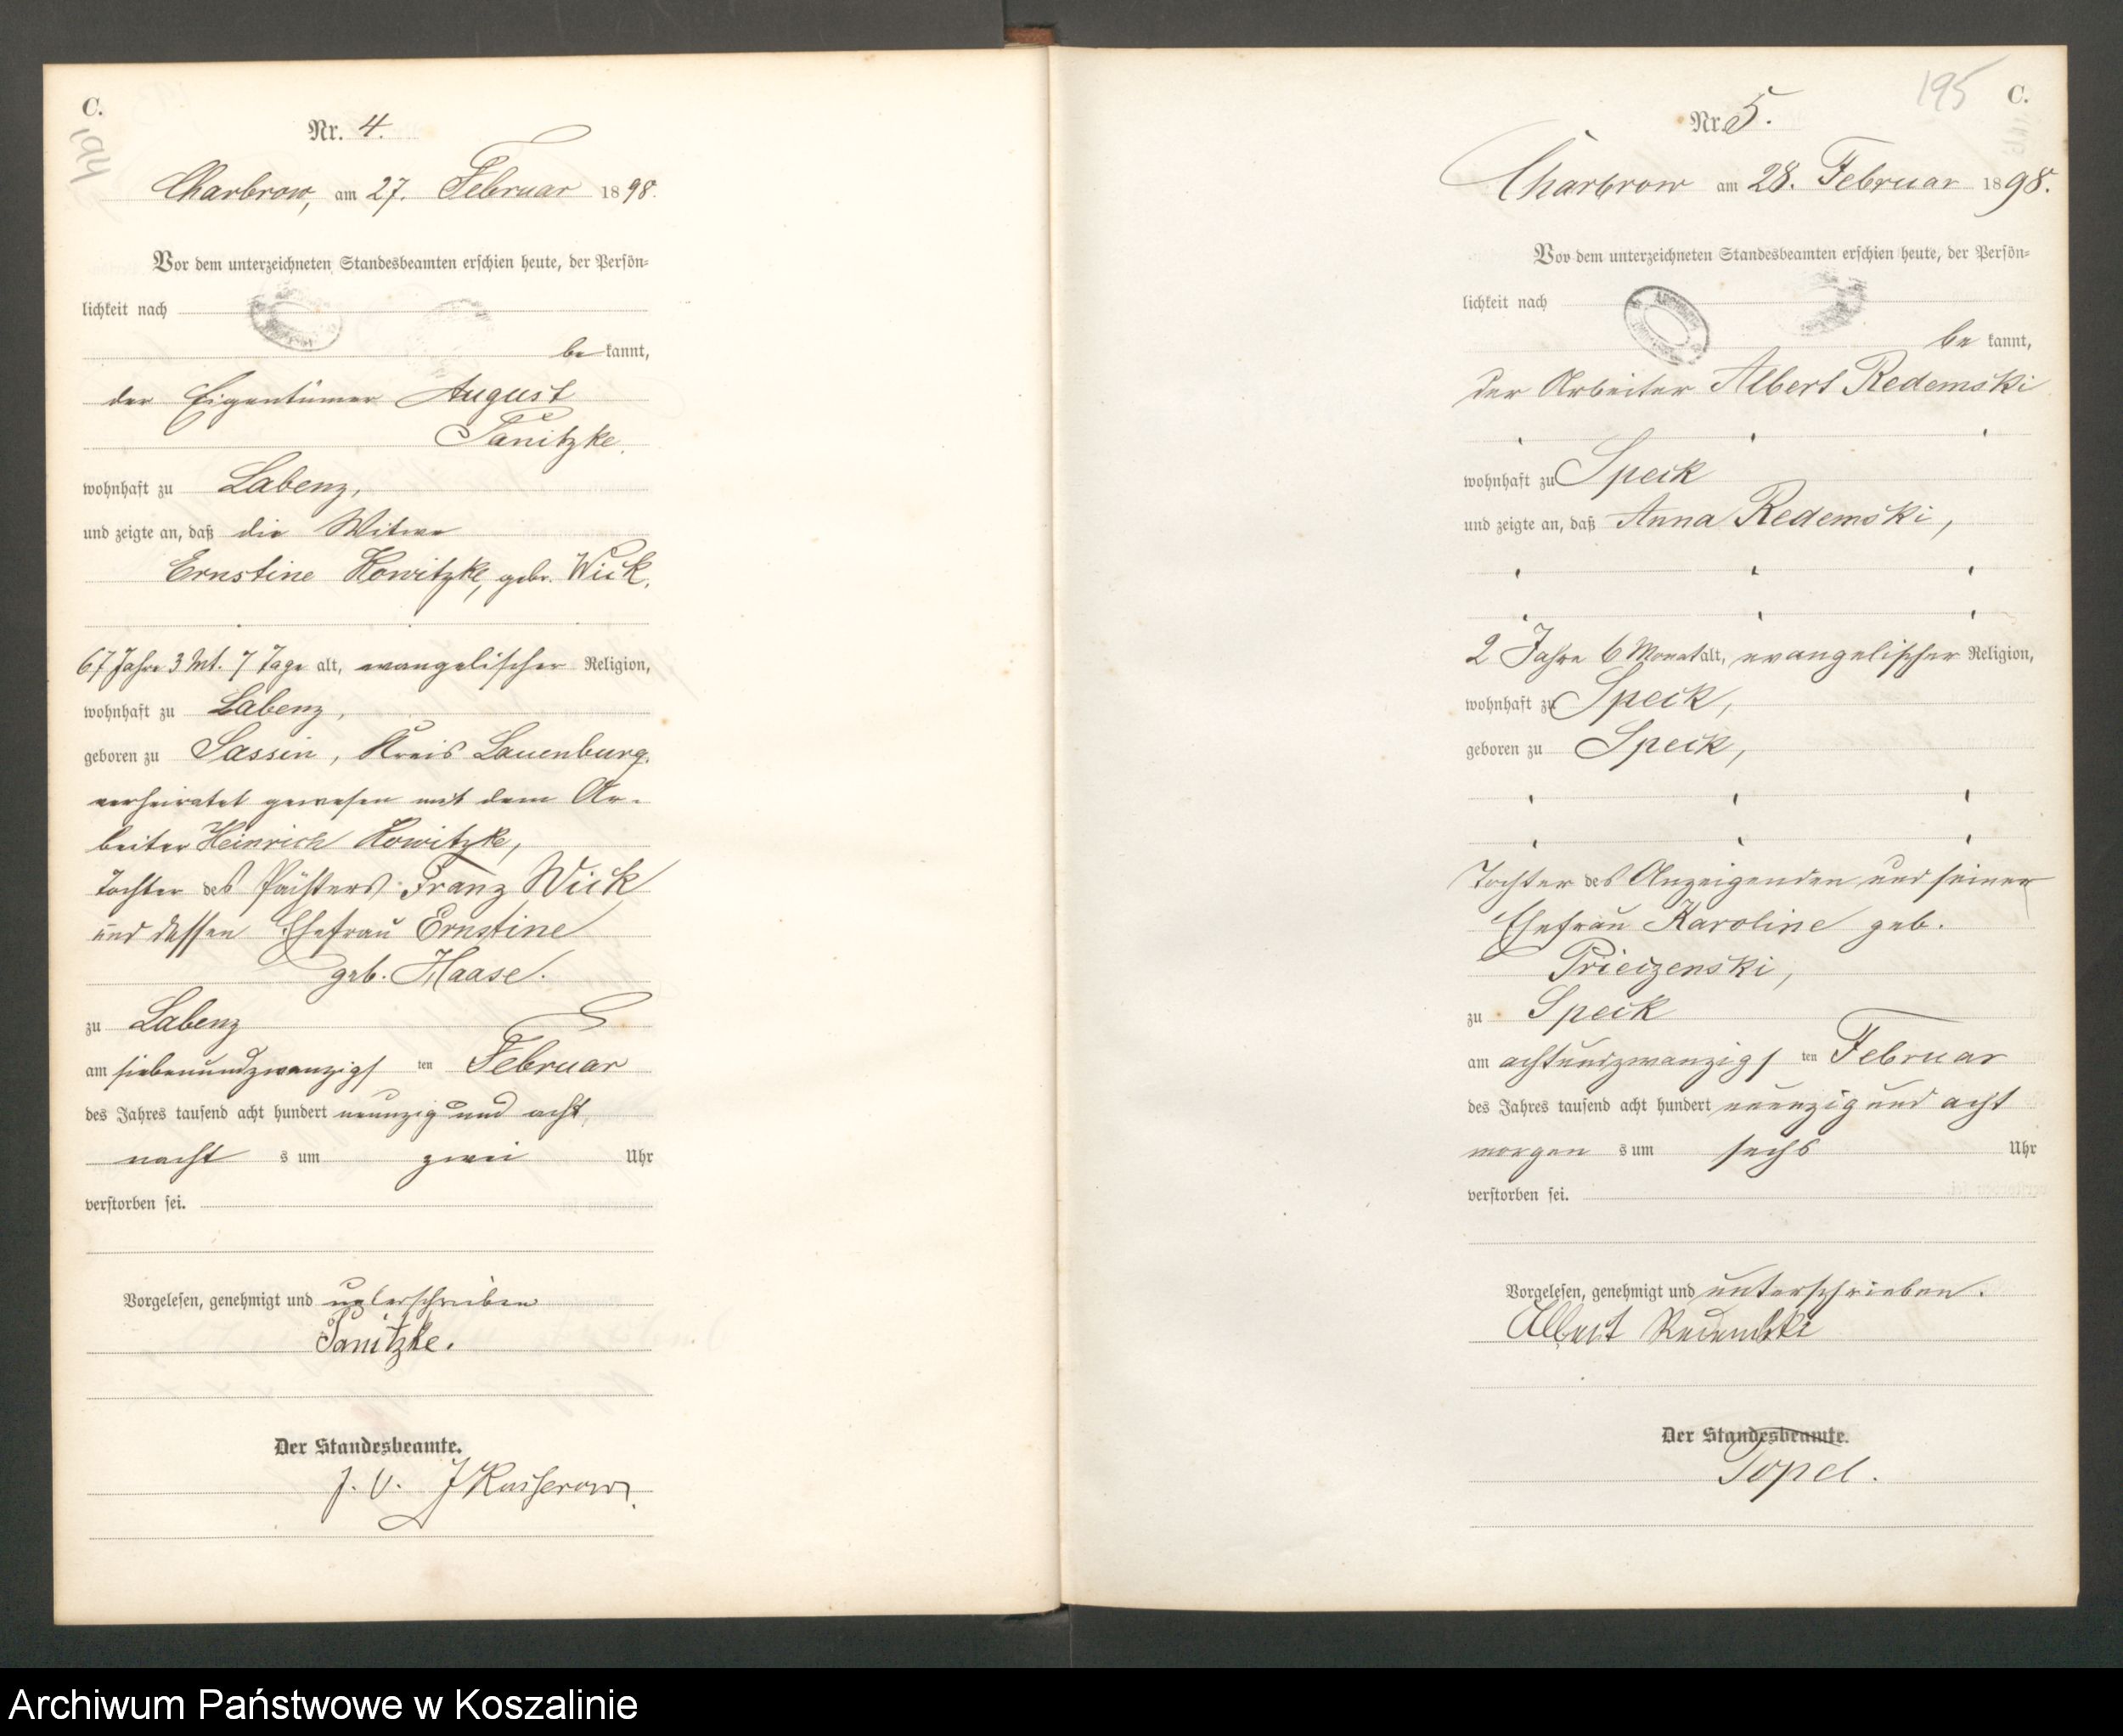 C.
194
Nr. 4.
Charbrow, am 27. Februar 1898.
Vor dem unterzeichneten Standesbeamten erschien heute, der Persön-
lichkeit nach
be kannt,
der Eigentümer August
Panitzke.
wohnhaft zu Labenz,
und zeigte an, daß die Witwe
Ernstine Kowitzke, gebr. Wick,
67 Jahre 3 Mt. 7 Tage alt, evangelischer Religion,
wohnhaft zu Labenz,
geboren zu Sassin, Kreis Lauenburg.
verheiratet gewesen mit dem Ar-
beiter Heinrich Kowitzke,
Tochter des Pächters Franz Wick
und dessen Ehefrau Ernstine
geb. Haase.
zu Labenz
am siebenundzwanzigs ten Februar
des Jahres tausend acht hundert neunzig und acht,
nacht s um zwei Uhr
verstorben sei.
Vorgelesen, genehmigt und unterschrieben
Panitzke.
Der Standesbeamte.
J. V.
195
C.
Nr. 5.
Charbrow am 28. Februar 1898.
Vor dem unterzeichneten Standesbeamten erschien heute, der Persön-
lichkeit nach
be kannt,
der Arbeiter Albert Redemski
wohnhaft zu Speck
und zeigte an, daß Anna Redemski,
2 Jahre 6 Monat alt, evangelischer Religion,
wohnhaft zu Speck,
geboren zu Speck,
Tochter des Anzeigenden und seiner
Ehefrau Karoline geb.
Prieczenski,
zu Speck
am achtundzwanzigs ten Februar
des Jahres tausend acht hundert neunzig und acht
morgen s um sechs Uhr
verstorben sei.
Vorgelesen, genehmigt und unterschrieben.
Albert Redembski
Der Standesbeamte.
Topel.
Archiwum Państwowe w Koszalinie